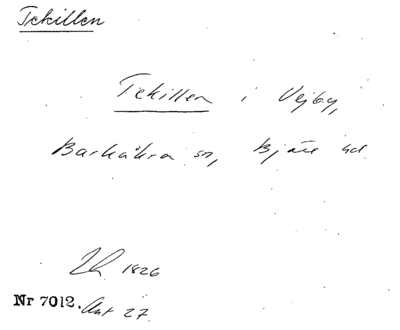 Tekillen
Tekillen i Vejby,
Barkåkra sn, Bjäre hd.
1826
Nr 7012. Ant 27.